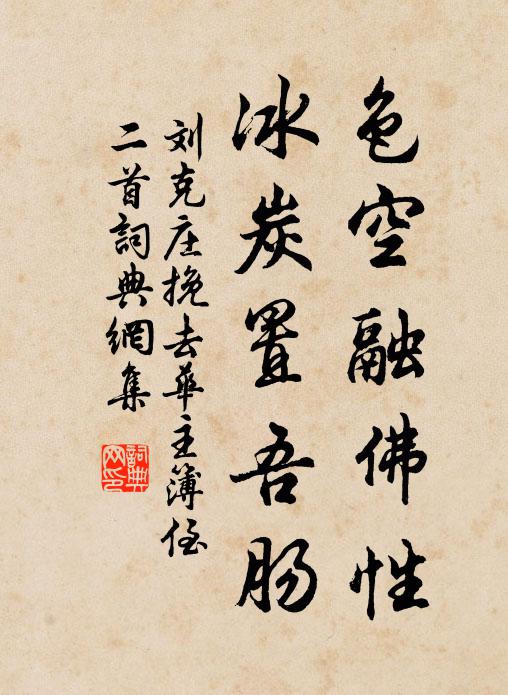 色空融佛性
冰炭置吾肠
刘克庄挽去华主簿侄
二首詞典網集
詞典网印